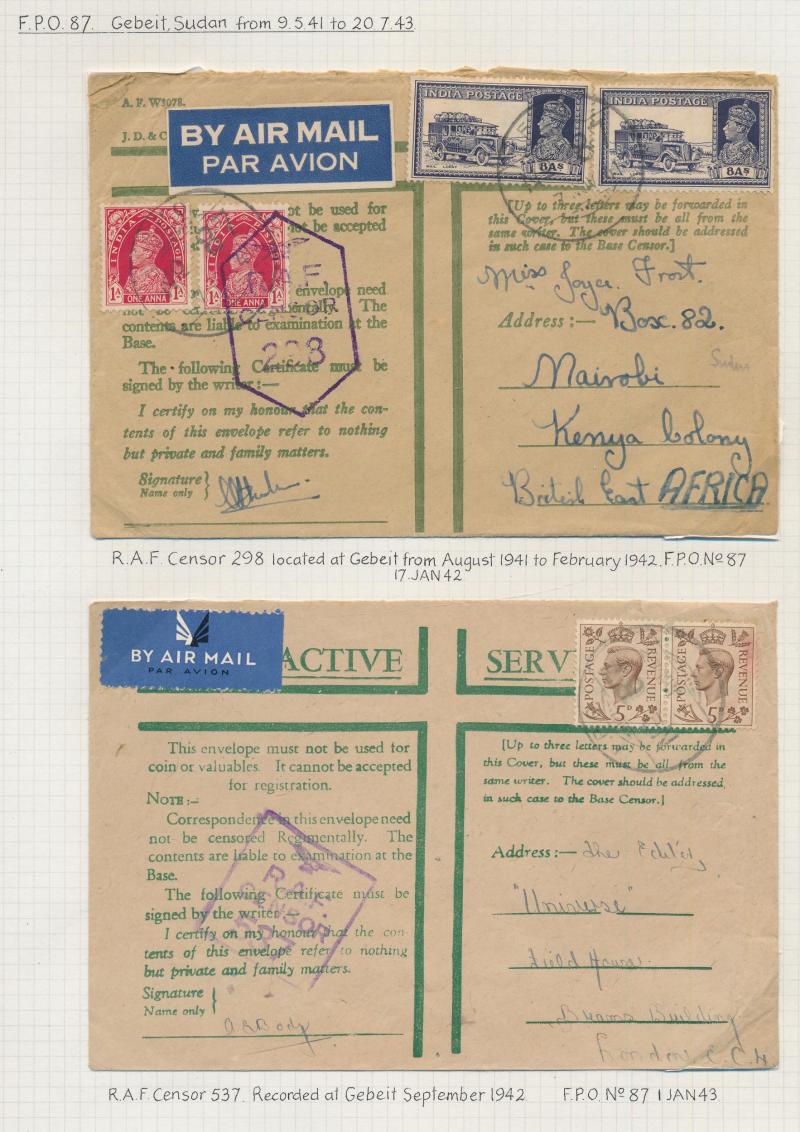 F.P.O. 87. Gebeit, Sudan from 9.5.41 to 20.7.43
A. F. W3078.
J. D. & C
BY AIR MAIL
PAR AVION
INDIA POSTAGE
8AS
INDIA POSTAGE
8AS
INDIA POSTAGE
1A ONE ANNA 1A
INDIA POSTAGE
1A ONE ANNA 1A
ot be used for
not be accepted
envelope need
not be
mentally. The
contents are liable to examination at the
Base.
The following Certificate must be
signed by the writer:—
I certify on my honour that the con-
tents of this envelope refer to nothing
but private and family matters.
Signature
Name only
R.A.F.
CENSOR
298
[Up to three letters may be forwarded in
this Cover, but these must be all from the
same writer. The cover should be addressed
in such case to the Base Censor.]
Miss Joyce Frost.
Address:— Box. 82.
Nairobi
Sudan
Kenya Colony
British East AFRICA
R.A.F. Censor 298 located at Gebeit from August 1941 to February 1942. F.P.O. No 87
17. JAN 42
BY AIR MAIL
PAR AVION
ACTIVE
SERV
POSTAGE REVENUE
5D
POSTAGE REVENUE
5D
This envelope must not be used for
coin or valuables. It cannot be accepted
for registration.
NOTE:—
Correspondence in this envelope need
not be censored Regimentally. The
contents are liable to examination at the
Base.
The following Certificate must be
signed by the writer
I certify on my honour that the con-
tents of this envelope refer to nothing
but private and family matters.
Signature
Name only
R.A.F.
CENSOR
537
[Up to three letters may be forwarded in
this Cover, but these must be all from the
same writer. The cover should be addressed
in such case to the Base Censor.]
Address:— The Editor,
"Universe"
Field House
Breams Building
London E.C.4.
R.A.F. Censor 537. Recorded at Gebeit September 1942 F.P.O. No 87 1 JAN 43